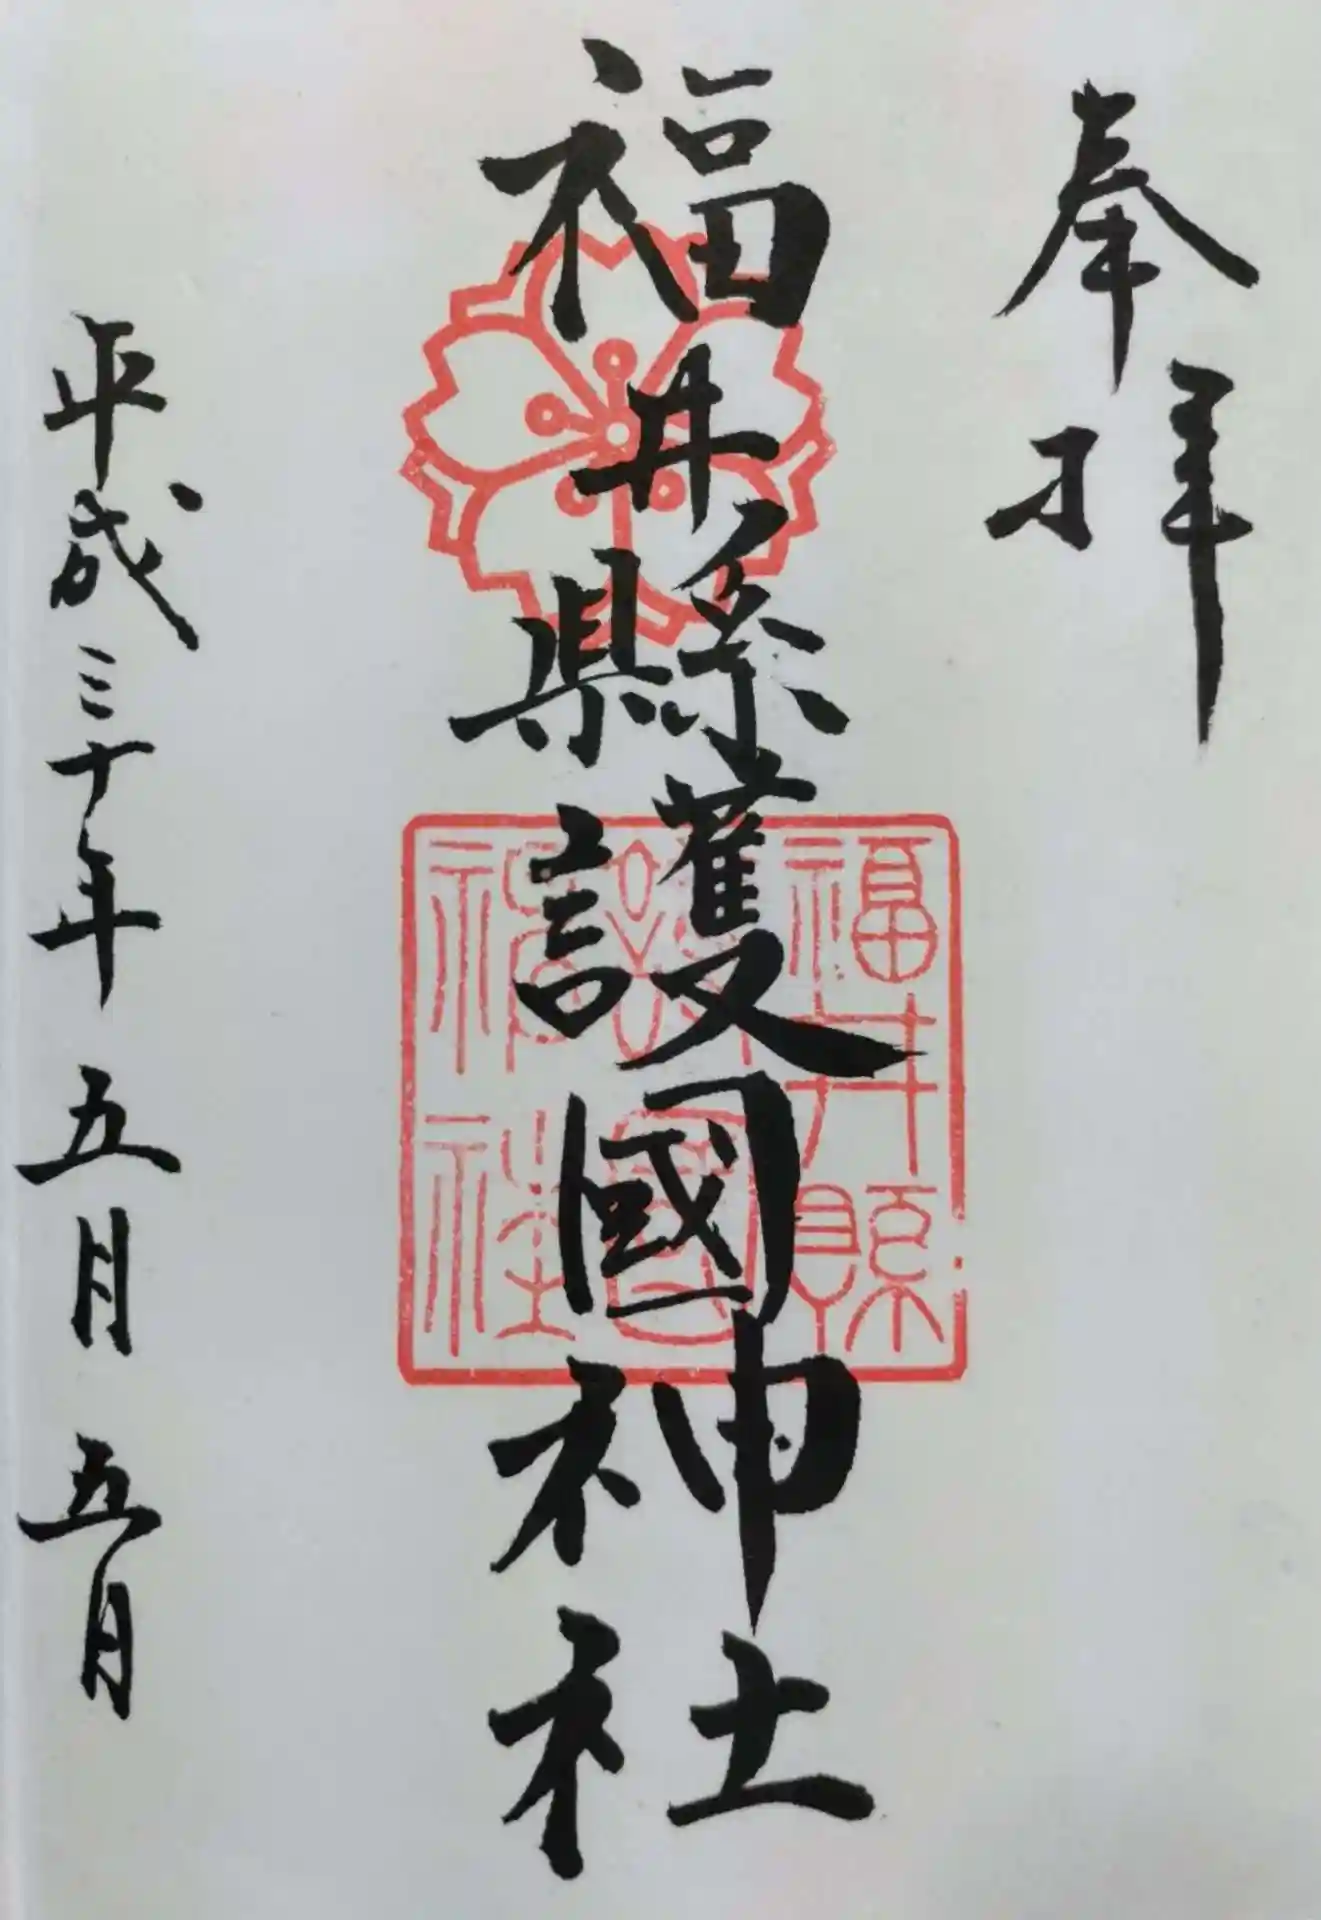 奉拝
福井縣護國神社
福井縣
護國
神社
平成三十年五月五日